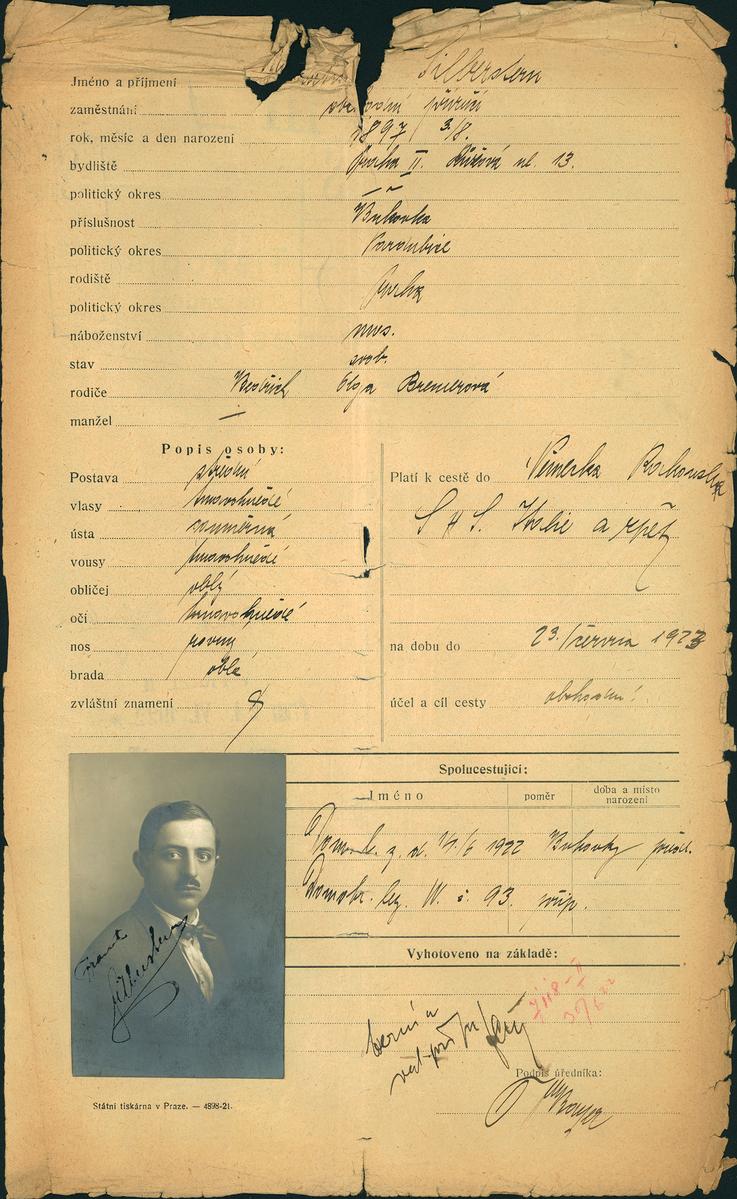 Jméno a příjmení Silberstern
zaměstnání obchodní
rok, měsíc a den narození 1897 3/8.
bydliště Praha II. Růžová ul. 13.
politický okres
příslušnost Bukovka
politický okres Pardubice
rodiště Praha
politický okres
náboženství mos.
stav svob.
rodiče Bedřich Olga Bremerová
manžel —
Popis osoby:
Postava střední
vlasy tmavohnědé
ústa souměrná
vousy tmavohnědé
obličej oblý
oči tmavohnědé
nos rovný
brada oblá
zvláštní znamení
Platí k cestě do Německa Rakouska
S H S. Italie a zpět
na dobu do 23. června 1923
účel a cíl cesty obchodní
Spolucestující:
Jméno
poměr
doba a místo narození
Domov. l. z d. 1922 Bukovky
Domobr. leg. 93.
Frant
Silberstern
Vyhotoveno na základě:
Podpis úředníka:
Státní tiskárna v Praze. — 4898-21.